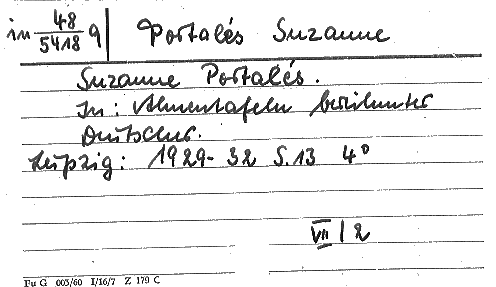 in 48/5418 q Portalés Suzanne
Suzanne Portalés.
In: Ahnentafeln berühmter
Deutscher.
Leipzig: 1929-32 S.13 4°
VII/2
Fu G 003/60 I/16/7 Z 179 C